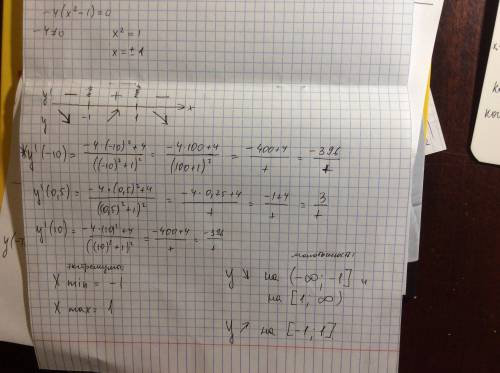 -4(x²-1)=0
-4≠0 x²=1
x=±1
y' - + - x
y ↘ -1 ↗ 1 ↘
y'(-10) = (-4·(-10)²+4)/((-10)²+1)² = (-4·100+4)/(100+1)² = (-400+4)/+ = -396/+
y'(0,5) = (-4·(0,5)²+4)/((0,5)²+1)² = (-4·0,25+4)/+ = (-1+4)/+ = 3/+
y'(10) = (-4·(10)²+4)/((10)²+1)² = (-400+4)/+ = -396/+
экстремумы:
X min = -1
X max = 1
монотонность:
y ↘ на (-∞; -1] и
на [1; ∞)
y ↗ на [-1; 1]